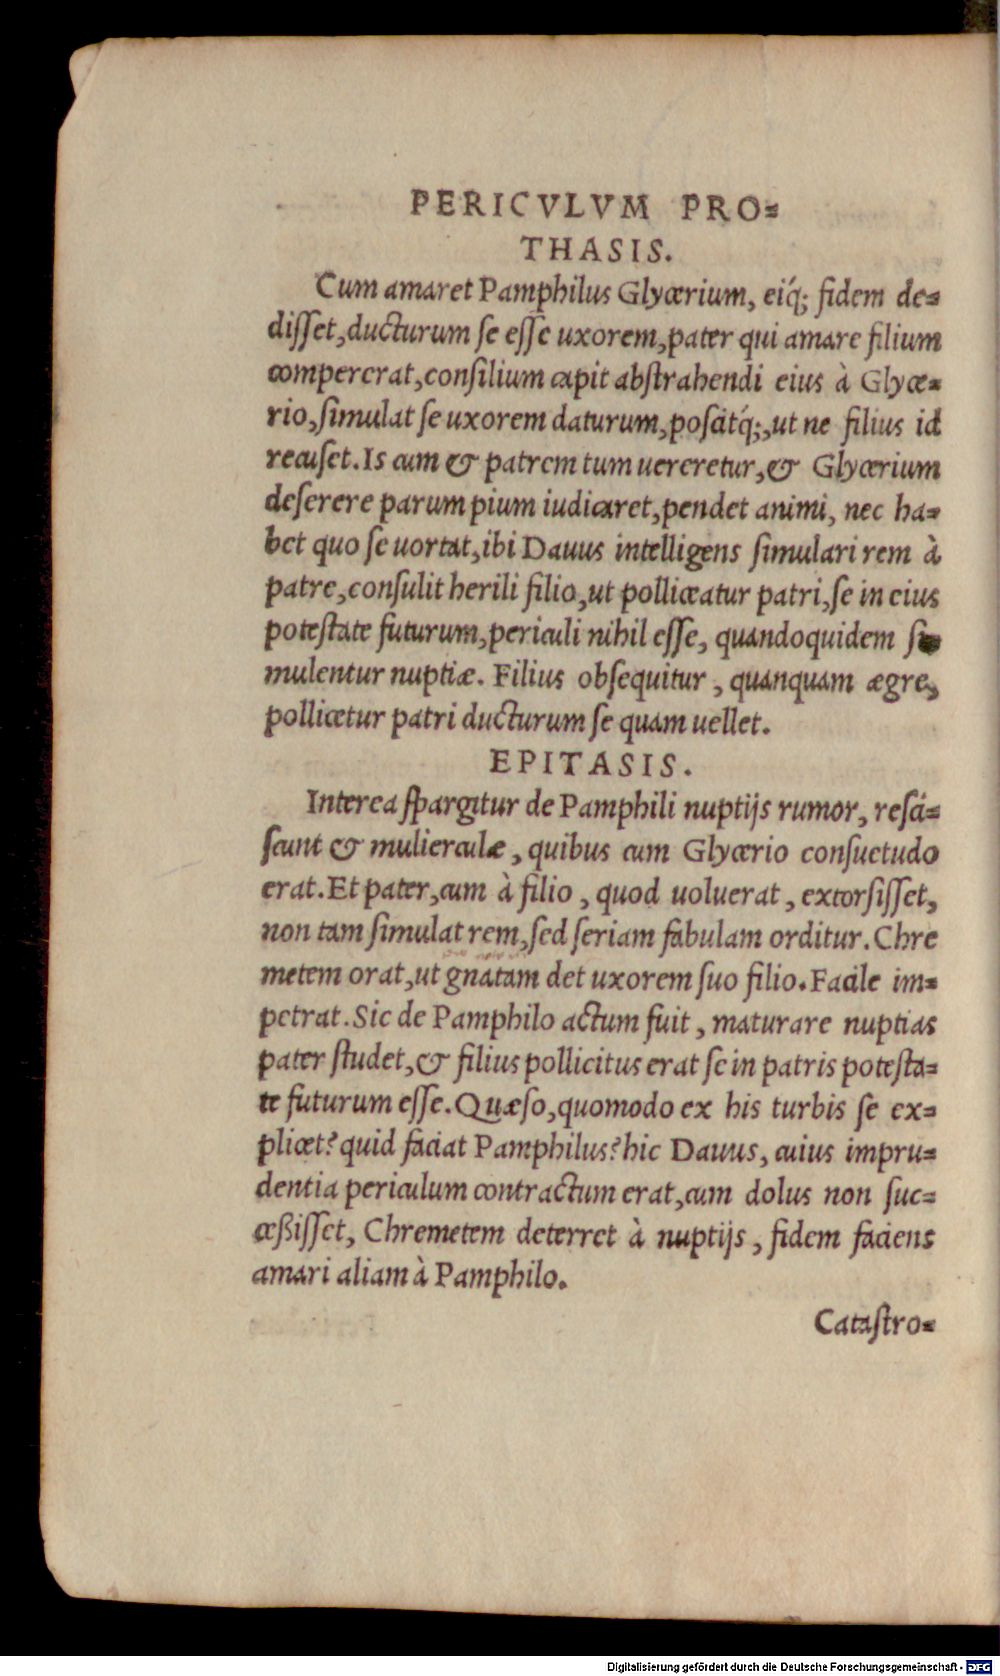 PERICVLVM PRO=
THASIS.
Cum amaret Pamphilus Glycerium, eiq́; fidem de=
diſſet, ducturum ſe eſſe uxorem, pater qui amare filium
compererat, conſilium capit abſtrahendi eius à Glyce=
rio, ſimulat ſe uxorem daturum, poſcitq́;, ut ne filius id
recuſet. Is cum & patrem tum uereretur, & Glycerium
deſerere parum pium iudicaret, pendet animi, nec ha=
bet quo ſe uortat, ibi Dauus intelligens ſimulari rem à
patre, conſulit herili filio, ut polliceatur patri, ſe in eius
poteſtate futurum, periculi nihil eſſe, quandoquidem ſi=
mulentur nuptiæ. Filius obſequitur, quanquam ægre,
pollicetur patri ducturum ſe quam uellet.
EPITASIS.
Interea ſpargitur de Pamphili nuptijs rumor, reſci=
ſcunt & mulierculæ, quibus cum Glycerio conſuetudo
erat. Et pater, cum à filio, quod uoluerat, extorſiſſet,
non tam ſimulat rem, ſed ſeriam fabulam orditur. Chre
metem orat, ut gnatam det uxorem ſuo filio. Facile im=
petrat. Sic de Pamphilo actum fuit, maturare nuptias
pater ſtudet, & filius pollicitus erat ſe in patris poteſta=
te futurum eſſe. Quæſo, quomodo ex his turbis ſe ex=
plicet? quid faciat Pamphilus? hic Dauus, cuius impru=
dentia periculum contractum erat, cum dolus non ſuc=
ceßiſſet, Chremetem deterret à nuptijs, fidem faciens
amari aliam à Pamphilo.
Cataſtro=
Digitalisierung gefördert durch die Deutsche Forschungsgemeinschaft - DFG